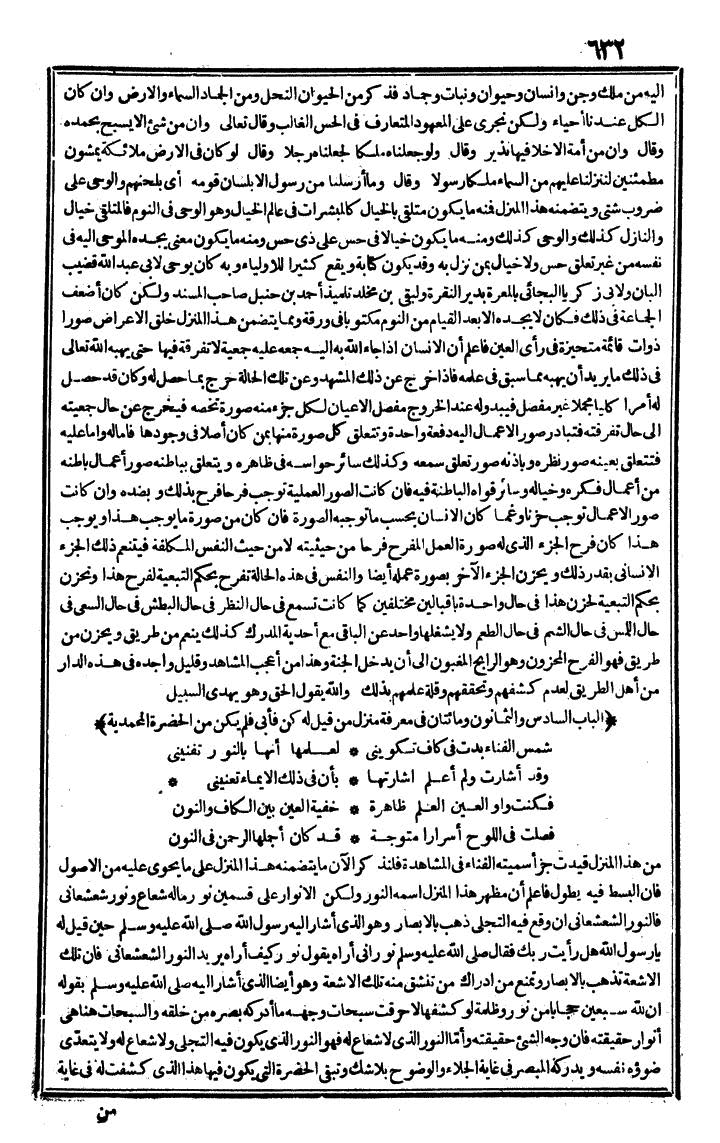 ٦٣٢
اليه من ملك وجن وانسان وحيوان ونبات وجماد فذكر من الحيوان النحل ومن الجماد السماء والارض وان كان
الكل عندنا أحياء ولكن نجرى على المعهود المتعارف فى الحس الغالب وقال تعالى وان من شئ الا يسبح بحمده
وقال وان من أمة الا خلا فيها نذير وقال ولو جعلناه ملكا لجعلناه رجلا وقال لو كان فى الارض ملائكة يمشون
مطمئنين لنزلنا عليهم من السماء ملكا رسولا وقال وما أرسلنا من رسول الا بلسان قومه أى بلحنهم والوحى على
ضروب شتى ويتضمنه هذا المنزل فنه ما يكون متلقى بالخيال كالمبشرات فى عالم الخيال وهو الوحى فى النوم فالمتلقى خيال
والنازل كذلك والوحى كذلك ومنه ما يكون خيالا فى حس على ذى حس ومنه ما يكون معنى يجده الموحى اليه فى
نفسه من غير تعلق حس ولا خيال بمن نزل به وقد يكون كتابة ويقع كثيرا للاولياء وبه كان يوحى لابى عبد الله قضيب
البان ولابى زكريا البجائى بالمعرة بدير النقرة ولبقى بن مخلد تلميذ أحمد بن حنبل صاحب المسند ولكن كان أضعف
الجماعة فى ذلك فكان لا يجده الا بعد القيام من النوم مكتوبا فى ورقة ومما يتضمن هذا المنزل خلق الاعراض صورا
ذوات قائمة متحيزة فى رأى العين فاعلم أن الانسان اذا جاء الله به اليه جمعه عليه جمعية لا تفرقة فيها حتى يهبه الله تعالى
فى ذلك ما يريد أن يهبه مما سبق فى علمه فاذا خرج عن ذلك المشهد وعن تلك الحالة خرج بما حصل له وكان قد حصل
له أمرا كليا مجملا غير مفصل فيبدو له عند الخروج مفصل الاعيان لكل جزء منه صورة تخصه فيخرج عن حال جمعيته
الى حال تفرقته فتبادر صور الاعمال اليه دفعة واحدة وتتعلق كل صورة منها بمن كان أصلا فى وجودها فاماله واما عليه
فتتعلق بعينه صور نظره وباذنه صور تعلق سمعه وكذلك سائر حواسه فى ظاهره ويتعلق بباطنه صور أعمال باطنه
من أعمال فكره وخياله وسائر قواه الباطنة فيه فان كانت الصور العملية توجب فرحا فرح بذلك وبضده وان كانت
صور الاعمال توجب حزنا وغما كان الانسان بحسب ما توجبه الصورة فان كان من صورة ما يوجب هذا ويوجب
هذا كان فرح الجزء الذى له صورة العمل المفرح فرحا من حيثيته لا من حيث النفس المكلفة فيتنعم ذلك الجزء
الانسانى بقدر ذلك ويحزن الجزء الآخر بصورة عمله أيضا والنفس فى هذه الحالة تفرح بحكم التبعية لفرح هذا وتحزن
بحكم التبعية لحزن هذا فى حال واحدة باقبالين مختلفين كما كانت تسمع فى حال النظر فى حال البطش فى حال السعى فى
حال اللمس فى حال الشم فى حال الطعم ولا يشغلها واحد عن الباقى مع أحدية المدرك كذلك ينعم من طريق ويحزن من
طريق فهو الفرح المحزون وهو الرابح المغبون الى أن يدخل الجنة وهذا من أعجب المشاهد وقليل واجده فى هذه الدار
من أهل الطريق لعدم كشفهم وتحققهم وقلة علمهم بذلك والله يقول الحق وهو يهدى السبيل
﴿الباب السادس والثمانون ومائتان فى معرفة منزل من قيل له كن فأبى فلم يكن من الحضرة المحمدية﴾
شمس الفناء بدت فى كاف تكوينى * لعلمها أنها بالنور تفنينى
وقد أشارت ولم أعلم اشارتها * بأن فى ذلك الايماء تعنينى *
فكنت واو العين العلم ظاهرة * خفية العين بين الكاف والنون
فصلت فى اللوح أسرارا متوجة * قد كان أجملها الرحمن فى النون
من هذا المنزل قيدت جزأ سميته الفناء فى المشاهدة فلنذكر الآن ما يتضمنه هذا المنزل على ما يحوى عليه من الاصول
فان البسط فيه يطول فاعلم أن مظهر هذا المنزل اسمه النور ولكن الانوار على قسمين نور ماله شعاع ونور شعشعانى
فالنور الشعشعانى ان وقع فيه التجلى ذهب بالابصار وهو الذى أشار اليه رسول الله صلى الله عليه وسلم حين قيل له
يا رسول الله هل رأيت ربك فقال صلى الله عليه وسلم نورانى أراه يقول نور كيف أراه يريد النور الشعشعانى فان تلك
الاشعة تذهب بالابصار وتمنع من ادراك من تنشق منه تلك الاشعة وهو أيضا الذى أشار اليه صلى الله عليه وسلم بقوله
ان لله سبعين حجابا من نور وظلمة لو كشفها لاحرقت سبحات وجهه ما أدركه بصره من خلقه والسبحات هنا هى
أنوار حقيقته فان وجه الشئ حقيقته وأما النور الذى لا شعاع له فهو النور الذى يكون فيه التجلى ولا شعاع له ولا يتعدى
ضوؤه نفسه ويدركه المبصر فى غاية الجلاء والوضوح بلا شك وتبقى الحضرة التى يكون فيها هذا الذى كشفت له فى غاية
من